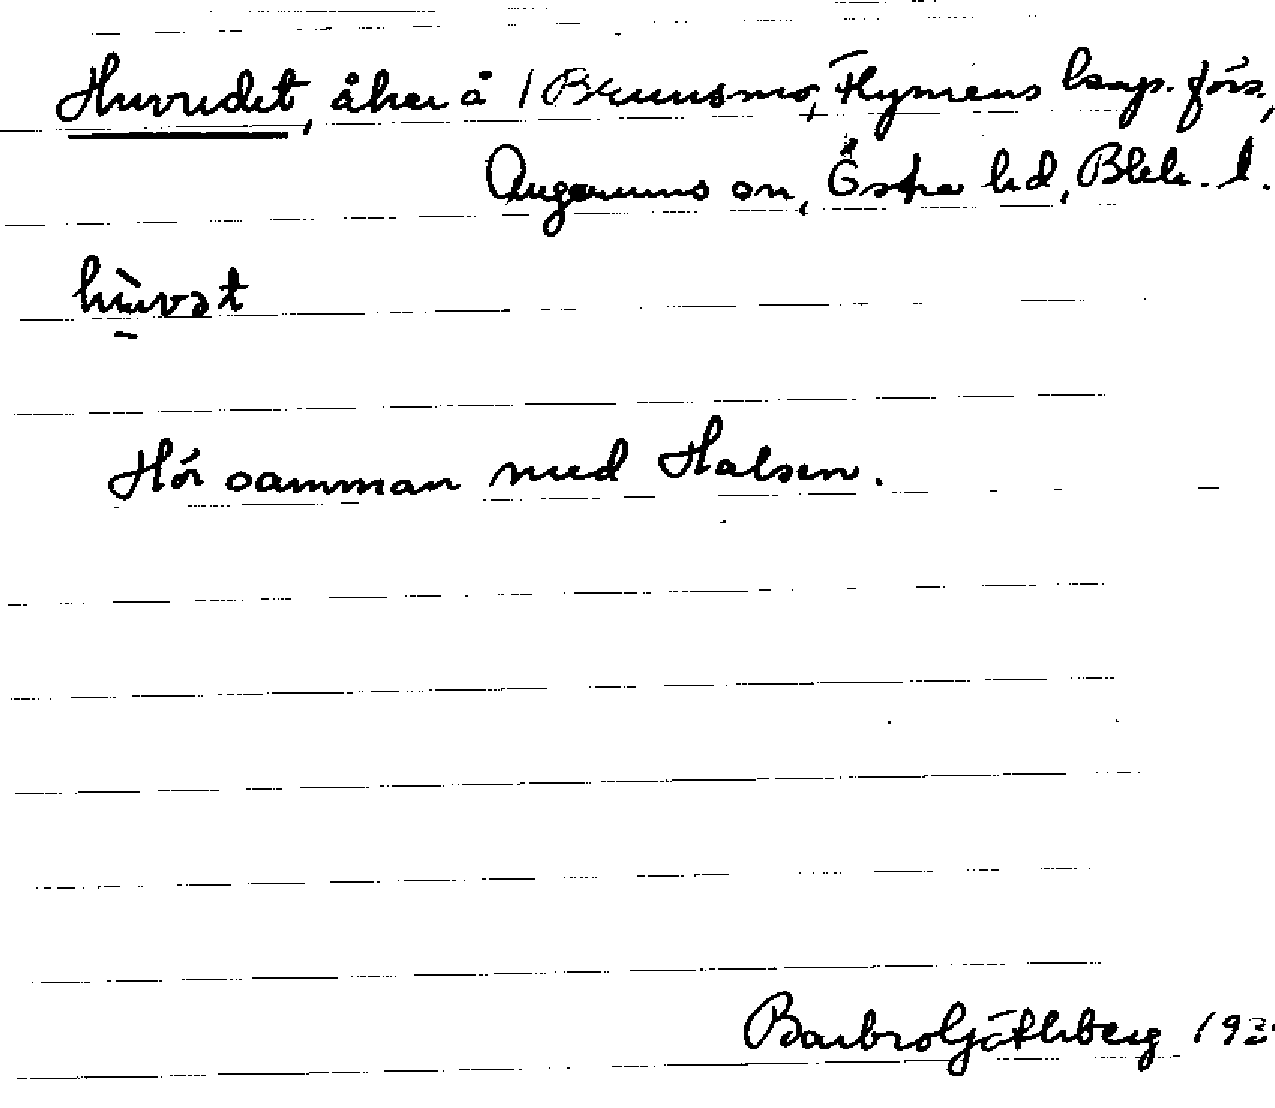 Huvudet, åker å 1 Brunsmo, Flymens kap. förs.,
Augerums sn, Östra hd, Blek. l.
hùvət
Hör samman med Halsen.
Barbro Götlberg 193